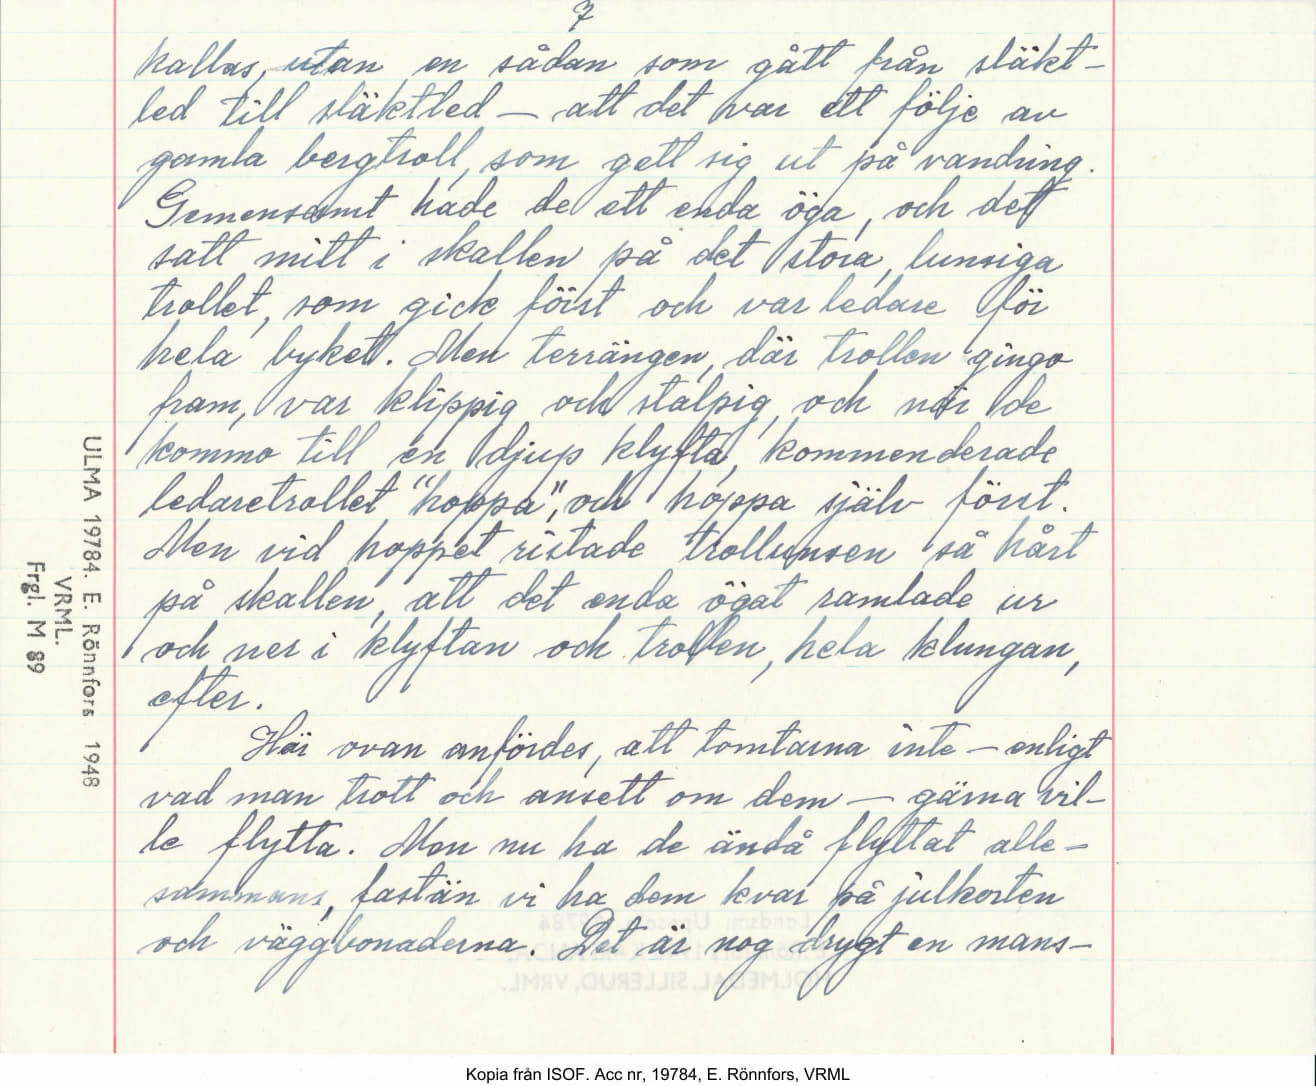 7
kallas, utan en sådan som gått från släkt-
led till släktled – att det var ett följe av
gamla bergtroll, som gett sig ut på vandring.
Gemensamt hade de ett enda öga, och det
satt mitt i skallen på det stora, lunsiga
trollet, som gick först och var ledare för
hela byket. Men terrängen, där trollen gingo
fram, var klippig och stalpig, och när de
kommo till en djup klyfta, kommenderade
ledaretrollet "hoppa", och hoppa själv först.
Men vid hoppet ristade trollunsen så hårt
på skallen, att det enda ögat ramlade ur
och ner i klyftan och trollen, hela klungan,
efter.
Här ovan anfördes, att tomtarna inte – enligt
vad man trott och ansett om dem – gärna vil-
le flytta. Men nu ha de ändå flyttat alle-
sammans, fastän vi ha dem kvar på julkorten
och väggbonaderna. Det är nog drygt en mans-
ULMA 19784. E. Rönnfors 1948
VRML.
Frgl. M 89
HOLMEDAL, SILLERUD, VRML.
Kopia från ISOF. Acc nr, 19784, E. Rönnfors, VRML